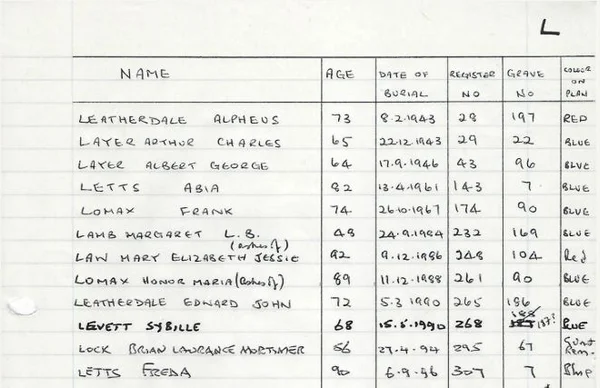 L
NAME AGE DATE OF BURIAL REGISTER NO GRAVE NO COLOUR ON PLAN
LEATHERDALE ALPHEUS 73 8.2.1943 28 197 RED
LAYER ARTHUR CHARLES 65 22.12.1943 29 22 BLUE
LAYER ALBERT GEORGE 64 17.9.1946 43 96 BLUE
LETTS ABIA 82 13.4.1961 143 7 BLUE
LOMAX FRANK 74 26.10.1967 174 90 BLUE
LAMB MARGARET L.B. (ashes of) 48 24.9.1984 232 169 BLUE
LAW MARY ELIZABETH JESSIE 92 9.12.1986 248 104 Red
LOMAX HONOR MARIA (Ashes of) 89 11.12.1988 261 90 BLUE
LEATHERDALE EDWARD JOHN 72 5.3.1990 265 186 BLUE
LEVETT SYBILLE 68 15.5.1990 268 188 187? BLUE
LOCK BRIAN LAWRANCE MORTIMER 56 27.4.94 295 67
LETTS FREDA 90 6.9.96 307 7